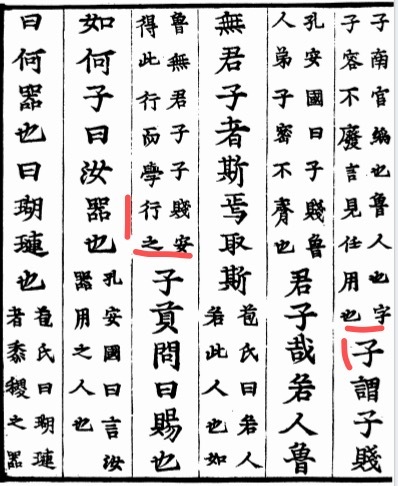 子南官縚也魯人也字子容不廢言見任用也子謂子賤
孔安國曰子賤魯人弟子密不齊也君子哉若人魯
無君子者斯焉取斯苞氏曰若人若此人也如
魯無君子子賤安得此行而學行之子貢問曰賜也
如何子曰汝器也孔安國曰言汝器用之人也
曰何器也曰瑚璉也苞氏曰瑚璉者黍稷之器